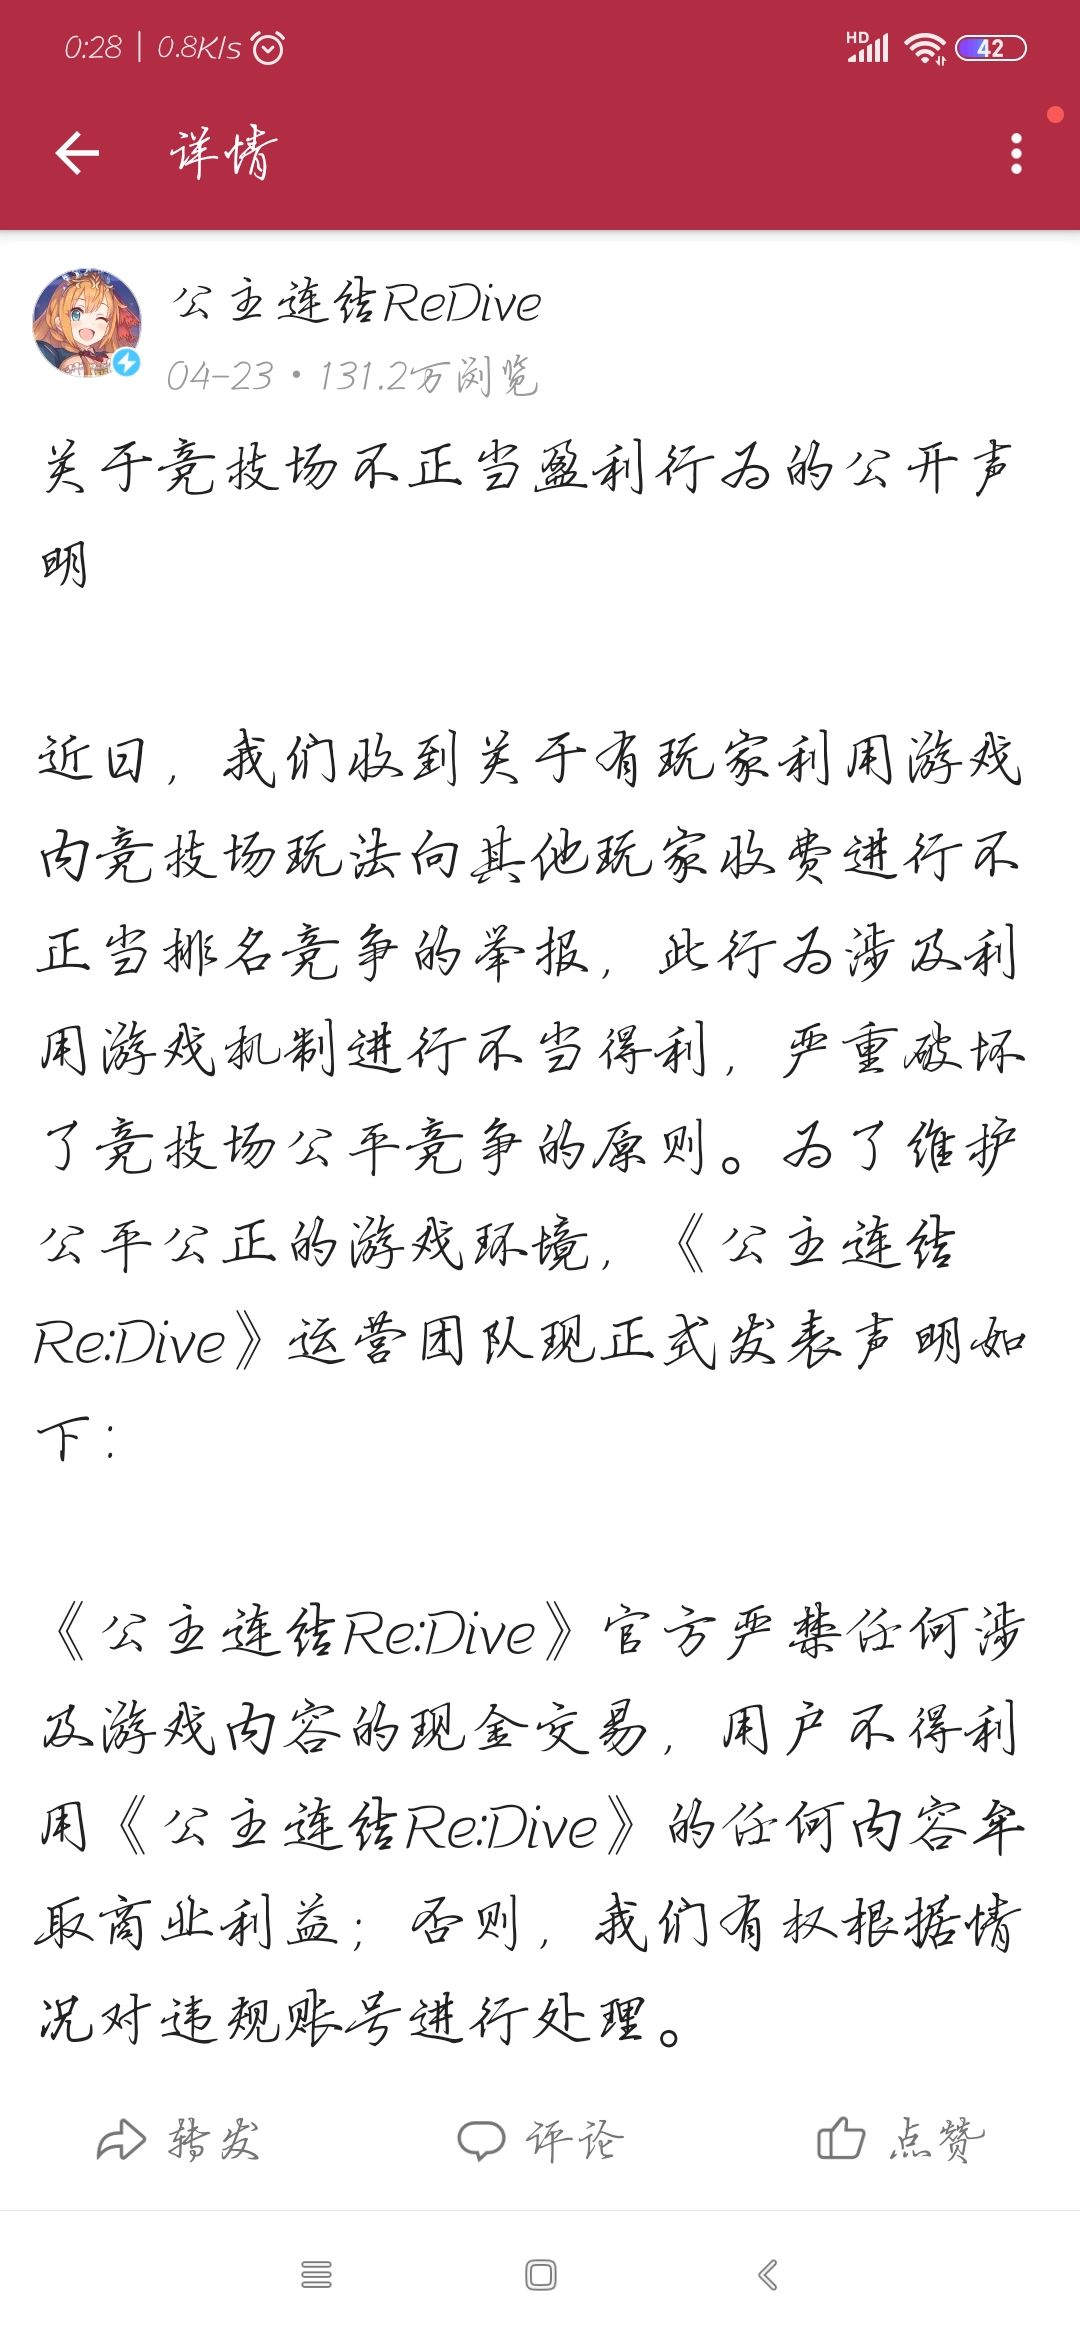 0:28 | 0.8K/s
HD
42
详情
公主连结ReDive
04-23 • 131.2万浏览
关于竞技场不正当盈利行为的公开声
明
近日，我们收到关于有玩家利用游戏
内竞技场玩法向其他玩家收费进行不
正当排名竞争的举报，此行为涉及利
用游戏机制进行不当得利，严重破坏
了竞技场公平竞争的原则。为了维护
公平公正的游戏环境，《公主连结
Re:Dive》运营团队现正式发表声明如
下：
《公主连结Re:Dive》官方严禁任何涉
及游戏内容的现金交易，用户不得利
用《公主连结Re:Dive》的任何内容牟
取商业利益；否则，我们有权根据情
况对违规账号进行处理。
转发 评论 点赞